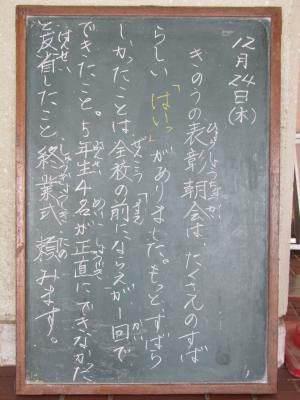 12月24日(木)
きのうの表彰朝会は、たくさんのすば
らしい「はいっ」がありました。もっとすばら
しかったことは、全校の「前にならえ」が1回で
できたこと。5年生4名が正直にできなかった
と反省したこと。終業式、頼みます。